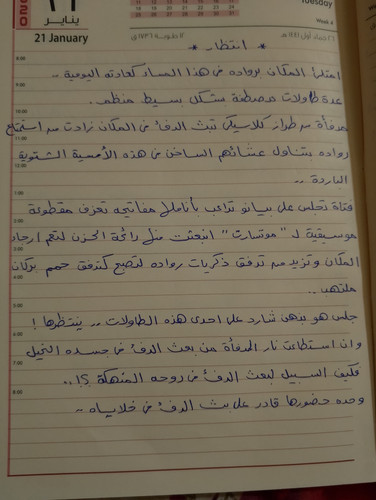 20
٢١
Tuesday
يناير
Week 4
21 January
* انتظار *
امتلأ المكان برواده في هذا المساء كعادته اليومية ..
عدة طاولات مصطفة بشكل بسيط منظم.
مدفأة من طراز كلاسيكي تبث الدفء في المكان زادت من استمتاع
رواده بتناول عشائهم الساخن في هذه الأمسية الشتوية
الباردة ..
فتاة تجلس على بيانو تداعب بأناملها مفاتيحه تعزف مقطوعة
موسيقية لـ "موتسارت" انبعثت منها رائحة الحزن لتعم ارجاء
المكان وتزيد من تدفق ذكريات رواده لتصبح كتدفق حمم بركان
ملتهب ..
جلس هو بذهن شارد على احدى هذه الطاولات .. ينتظرها !
وان استطاعت نار المدفأة من بعث الدفء في جسده النحيل
فكيف السبيل لبعث الدفء في روحه المنهكة ؟! ..
وحده حضورها قادر على بث الدفء في خلاياه ..
8:00
9:00
10:00
11:00
12:00
1:00
2:00
3:00
4:00
5:00
6:00
7:00
8:00